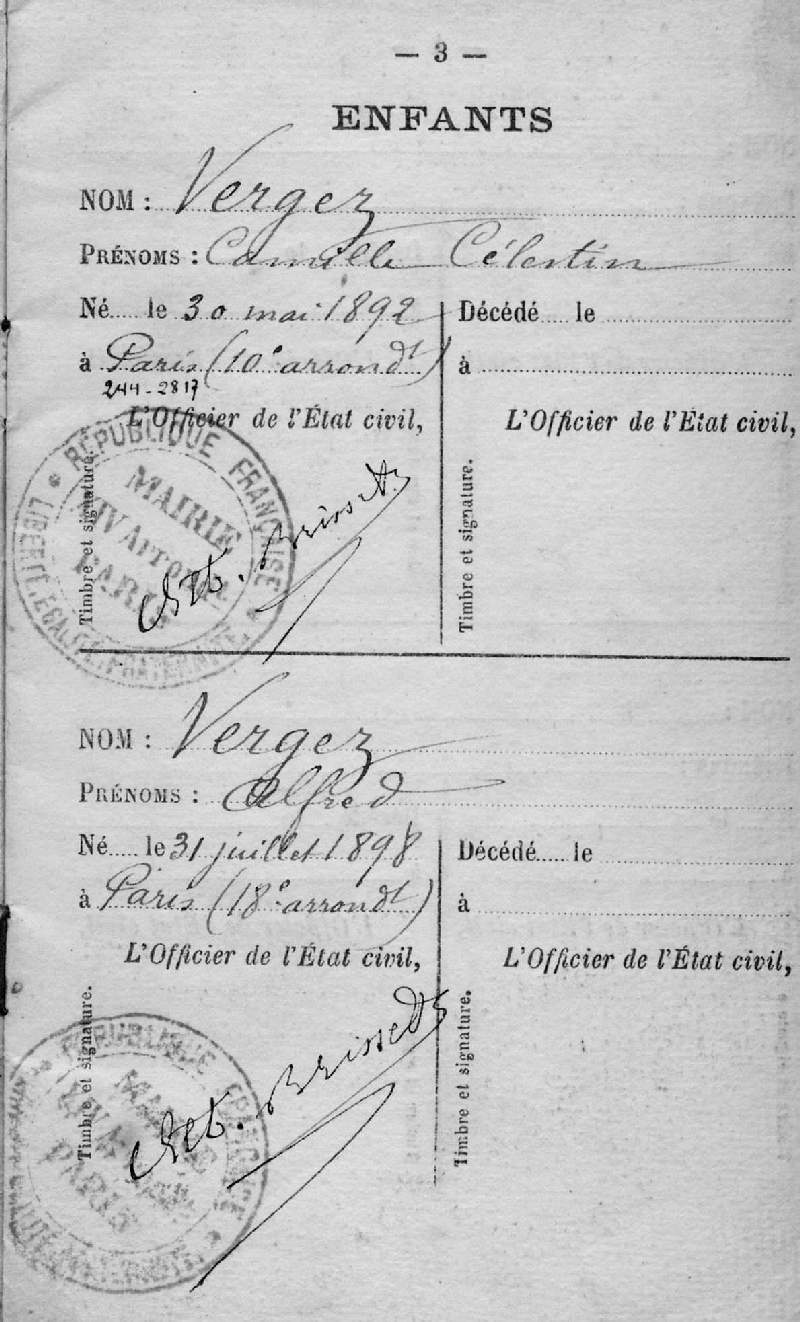 — 3 —
ENFANTS
NOM : Vergez
PRÉNOMS : Camille Célestin
Né le 30 mai 1892
à Paris (10e arrondt)
244-2817
L'Officier de l'État civil,
Timbre et signature.
RÉPUBLIQUE FRANÇAISE
LIBERTÉ, EGALITÉ, FRATERNITÉ
MAIRIE
XIV Arrond.
PARIS
Brissett
Décédé le
à
L'Officier de l'État civil,
Timbre et signature.
NOM : Vergez
PRÉNOMS : Alfred
Né le 31 juillet 1898
à Paris (18e arrondt)
L'Officier de l'État civil,
Timbre et signature.
RÉPUBLIQUE FRANÇAISE
MAIRIE
PARIS
Brissett
Décédé le
à
L'Officier de l'État civil,
Timbre et signature.